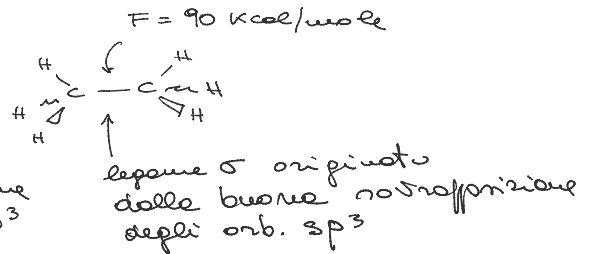 F = 90 Kcal/mole
H H
C — C H
H H
H
legame σ originato
dalla buona sovrapposizione
degli orb. sp³